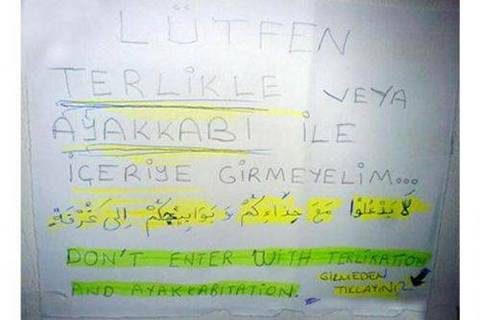 LÜTFEN
TERLİKLE VEYA
AYAKKABI İLE
İÇERİYE GİRMEYELİM...
لَا يَدْخُلُوا مَعَ حِذَاءِكُمْ وَ إِلَى غُرْفَةٍ
DON'T ENTER WITH TERLİKATION
AND AYAKKABITATION.
GİRMEDEN
TIKLAYINIZ